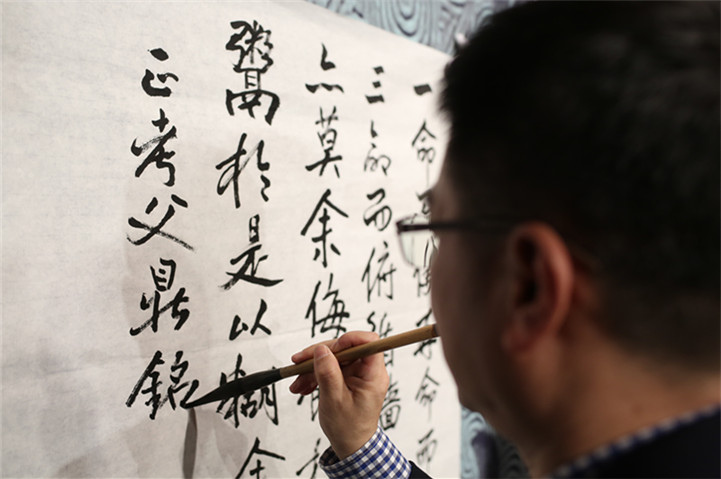 一命而再命而
三命而俯循
亦莫余侮
鬻於是以糊余
正考父鼎銘